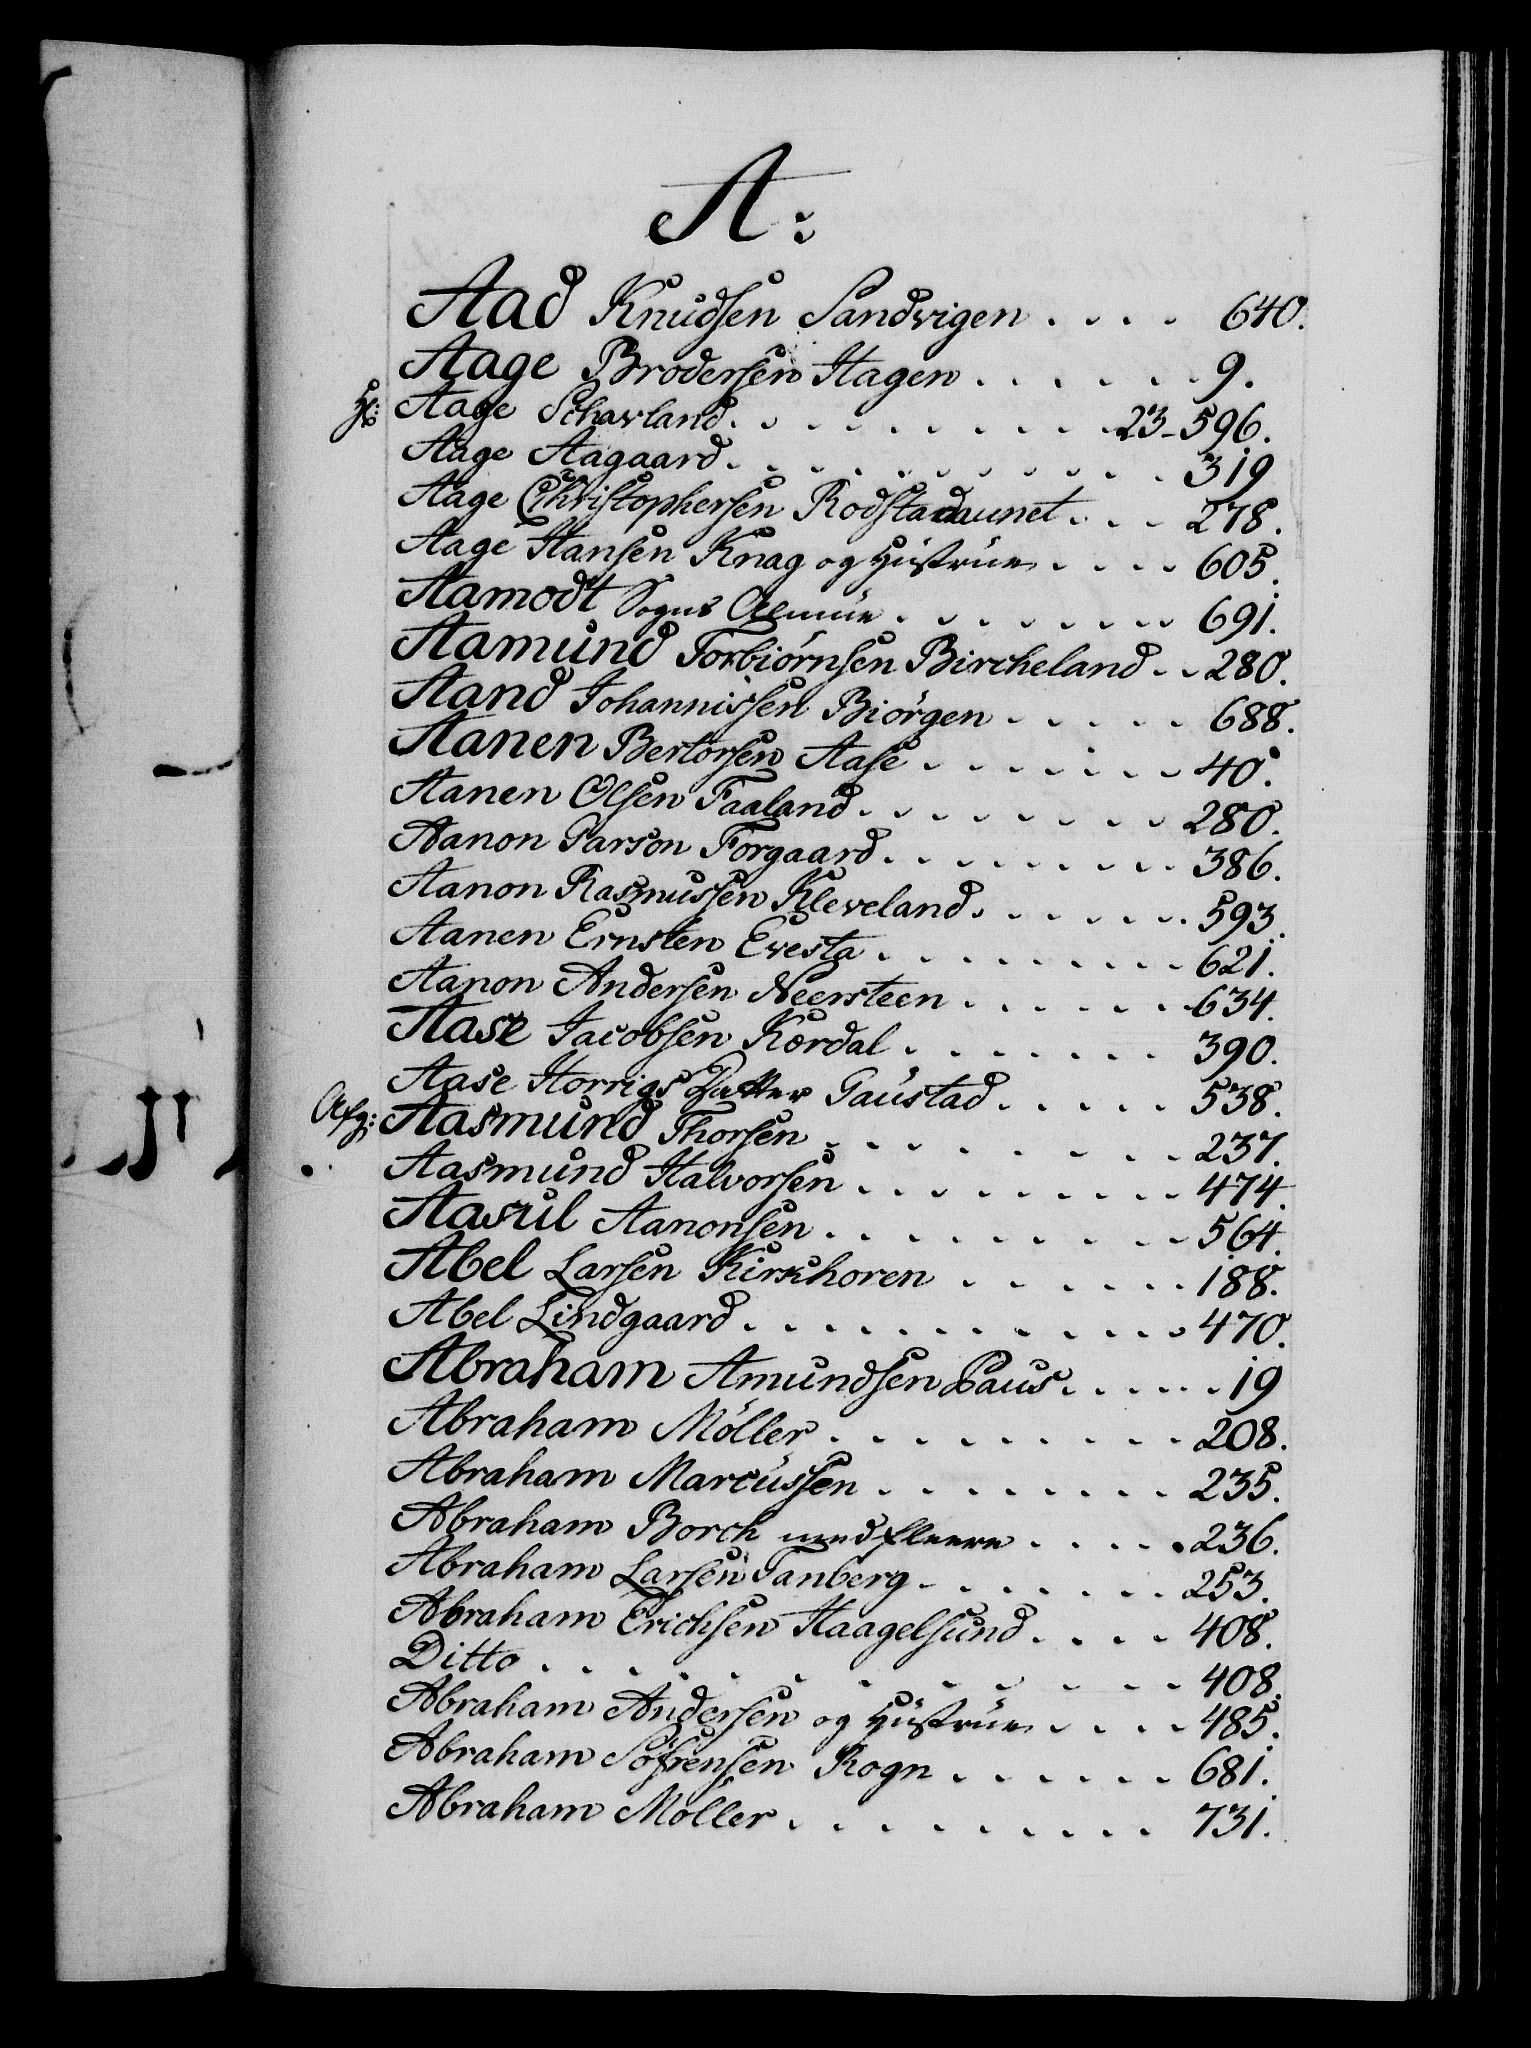 A:
Aad Knudsen Sandvigen . . . . 640.
Aage Brodersen Hagen . . . . . . 9.
Hr: Aage Schavland . . . . . . . . . 23-596.
Aage Aagaard . . . . . . . . . . 319
Aage Christophersen Rodstadaunet . . . 278.
Aage Hansen Knag og Hüstrüe . . . . 605.
Aamodt Sogns Almüe . . . . . . . . 691.
Aamund Torbiörnsen Bircheland . . 280.
Aand Johannissen Biörgen . . . . . 688.
Aanen Bertorsen Aase . . . . . . . 40.
Aanen Olsen Faaland . . . . . . . . 280.
Aanon Parson Forgaard . . . . . . . . . 386.
Aanon Rasmussen Kleveland . . . . . . . 593.
Aanen Ernsten Evesta . . . . . . . . . 621.
Aanon Andersen Neersteen . . . . . . 634.
Aase Jacobsen Kordal . . . . . . . 390.
Aase Horrigs Datter Gaüstad . . . . . 538.
Afg: Aasmund Thorsen . . . . . . . . . 237.
Aasmund Halvorsen . . . . . . . . . 474.
Aasül Aanonsen . . . . . . . . . 564.
Abel Larsen Kirkhoren . . . . . . 188.
Abel Lindgaard . . . . . . . . . . . . 470.
Abraham Amundsen Paus . . . . . . 19
Abraham Möller . . . . . . . . . 208.
Abraham Marcüssen . . . . . . . . 235.
Abraham Borch med fleere . . . . . 236.
Abraham Larsen Tanberg . . . . . . . 253.
Abraham Erichsen Haagelsund . . . . 408.
Ditto . . . . . . . . . . . . 408.
Abraham Andersen og Hüstrüe . . . . 485.
Abraham Söfrensen Rogn . . . . . . 681.
Abraham Möller . . . . . . . . . 731.